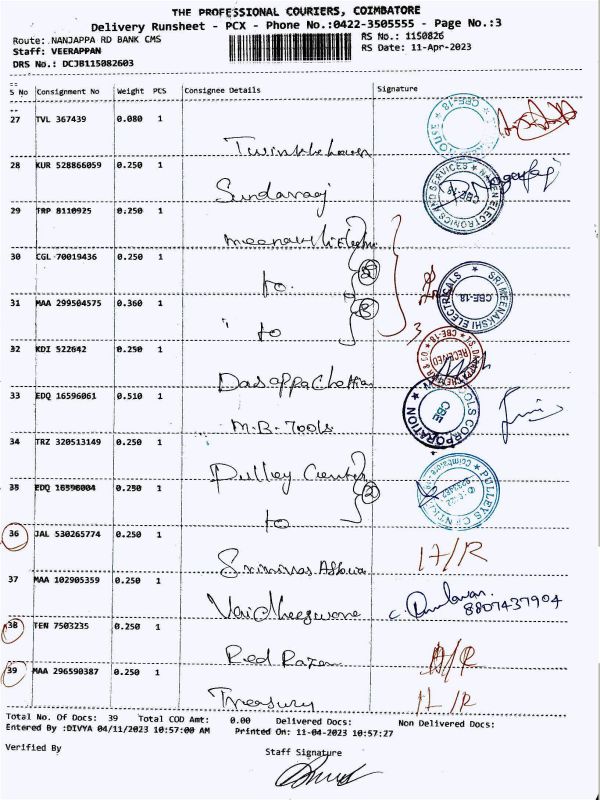 THE PROFESSIONAL COURIERS, COIMBATORE
Delivery Runsheet - PCX - Phone No.:0422-3505555 - Page No.:3
Route: .NANJAPPA RD BANK CMS
RS No.: 1150826
Staff: VEERAPPAN
RS Date: 11-Apr-2023
DRS No.: DCJB115082603
S No Consignment No Weight PCS Consignee Details Signature
27 TVL 367439 0.080 1
28 KUR 528866059 0.250 1
Sundarraj
29 TRP 8110925 0.250 1
30 CGL 70019436 0.250 1
to
31 MAA 299504575 0.360 1
to
3
32 KDI 522642 0.250 1
Dasappa Chettiar
33 EDQ 16596061 0.510 1
M.B. Tools
34 TRZ 320513149 0.250 1
Pulley Center
35 EDQ 16596004 0.250 1
2
to
36 JAL 530265774 0.250 1
Srinivas
37 MAA 102905359 0.250 1
8807437904
38 TEN 7503235 0.250 1
Red
39 MAA 296590387 0.250 1
Treasury
SRI MEENAKSHI ELECTRICALS
CBE-18.
RECEIVED
CORPORATION
CBE
PULLEYS
Coimbatore
Total No. Of Docs: 39 Total COD Amt: 0.00 Delivered Docs: Non Delivered Docs:
Entered By :DIVYA 04/11/2023 10:57:00 AM Printed On: 11-04-2023 10:57:27
Verified By
Staff Signature